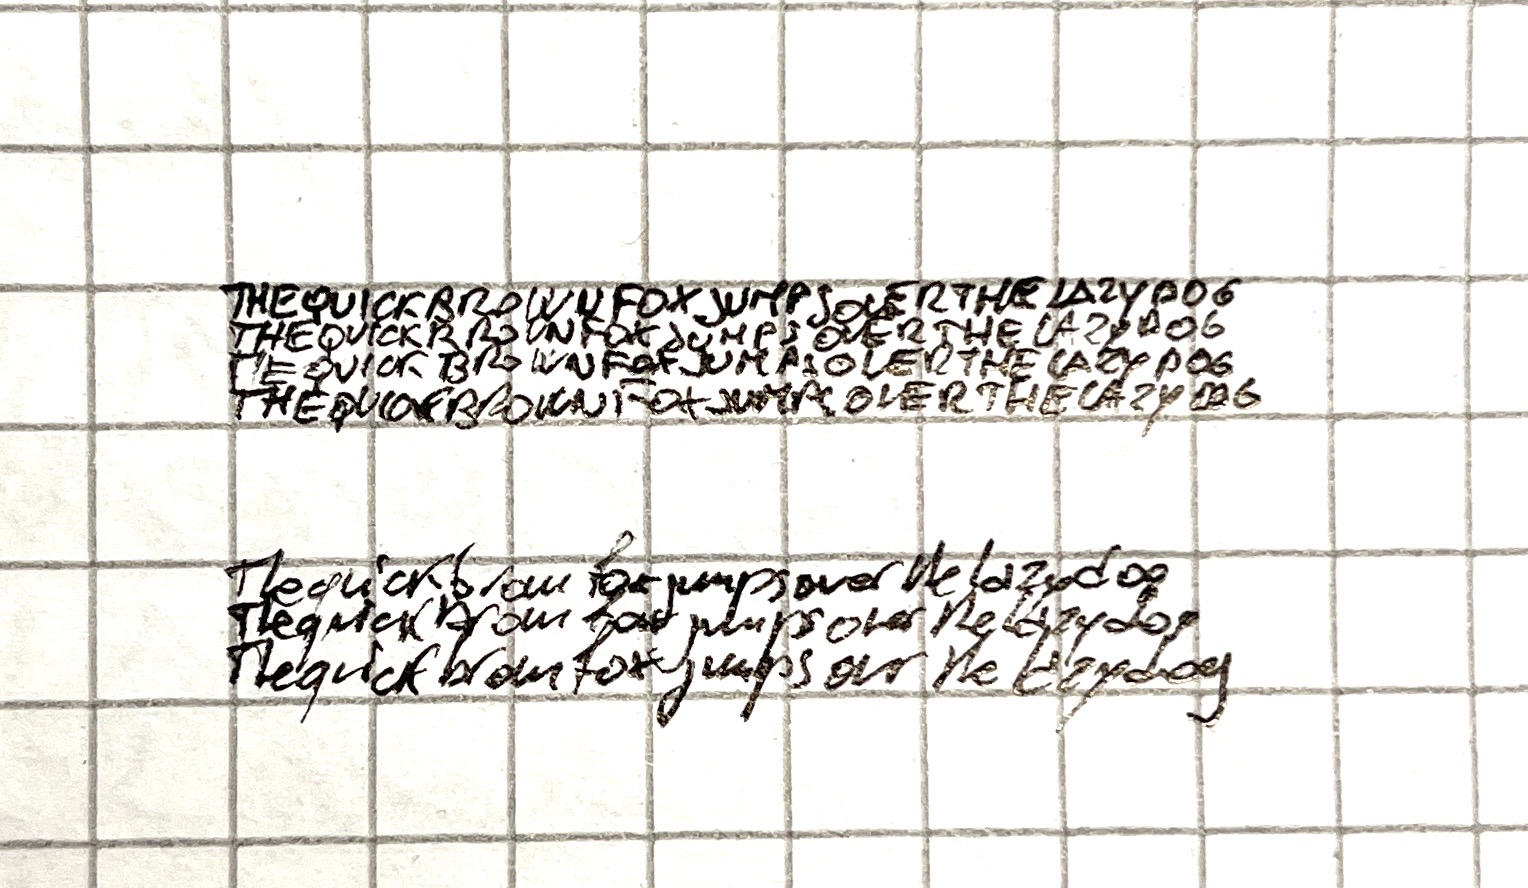 THE QUICK BROWN FOX JUMPS OVER THE LAZY DOG
THE QUICK BROWN FOX JUMPS OVER THE LAZY DOG
THE QUICK BROWN FOX JUMPS OVER THE LAZY DOG
THE QUICK BROWN FOX JUMPS OVER THE LAZY DOG
The quick brown fox jumps over the lazy dog
The quick brown fox jumps over the lazy dog
The quick brown fox jumps over the lazy dog